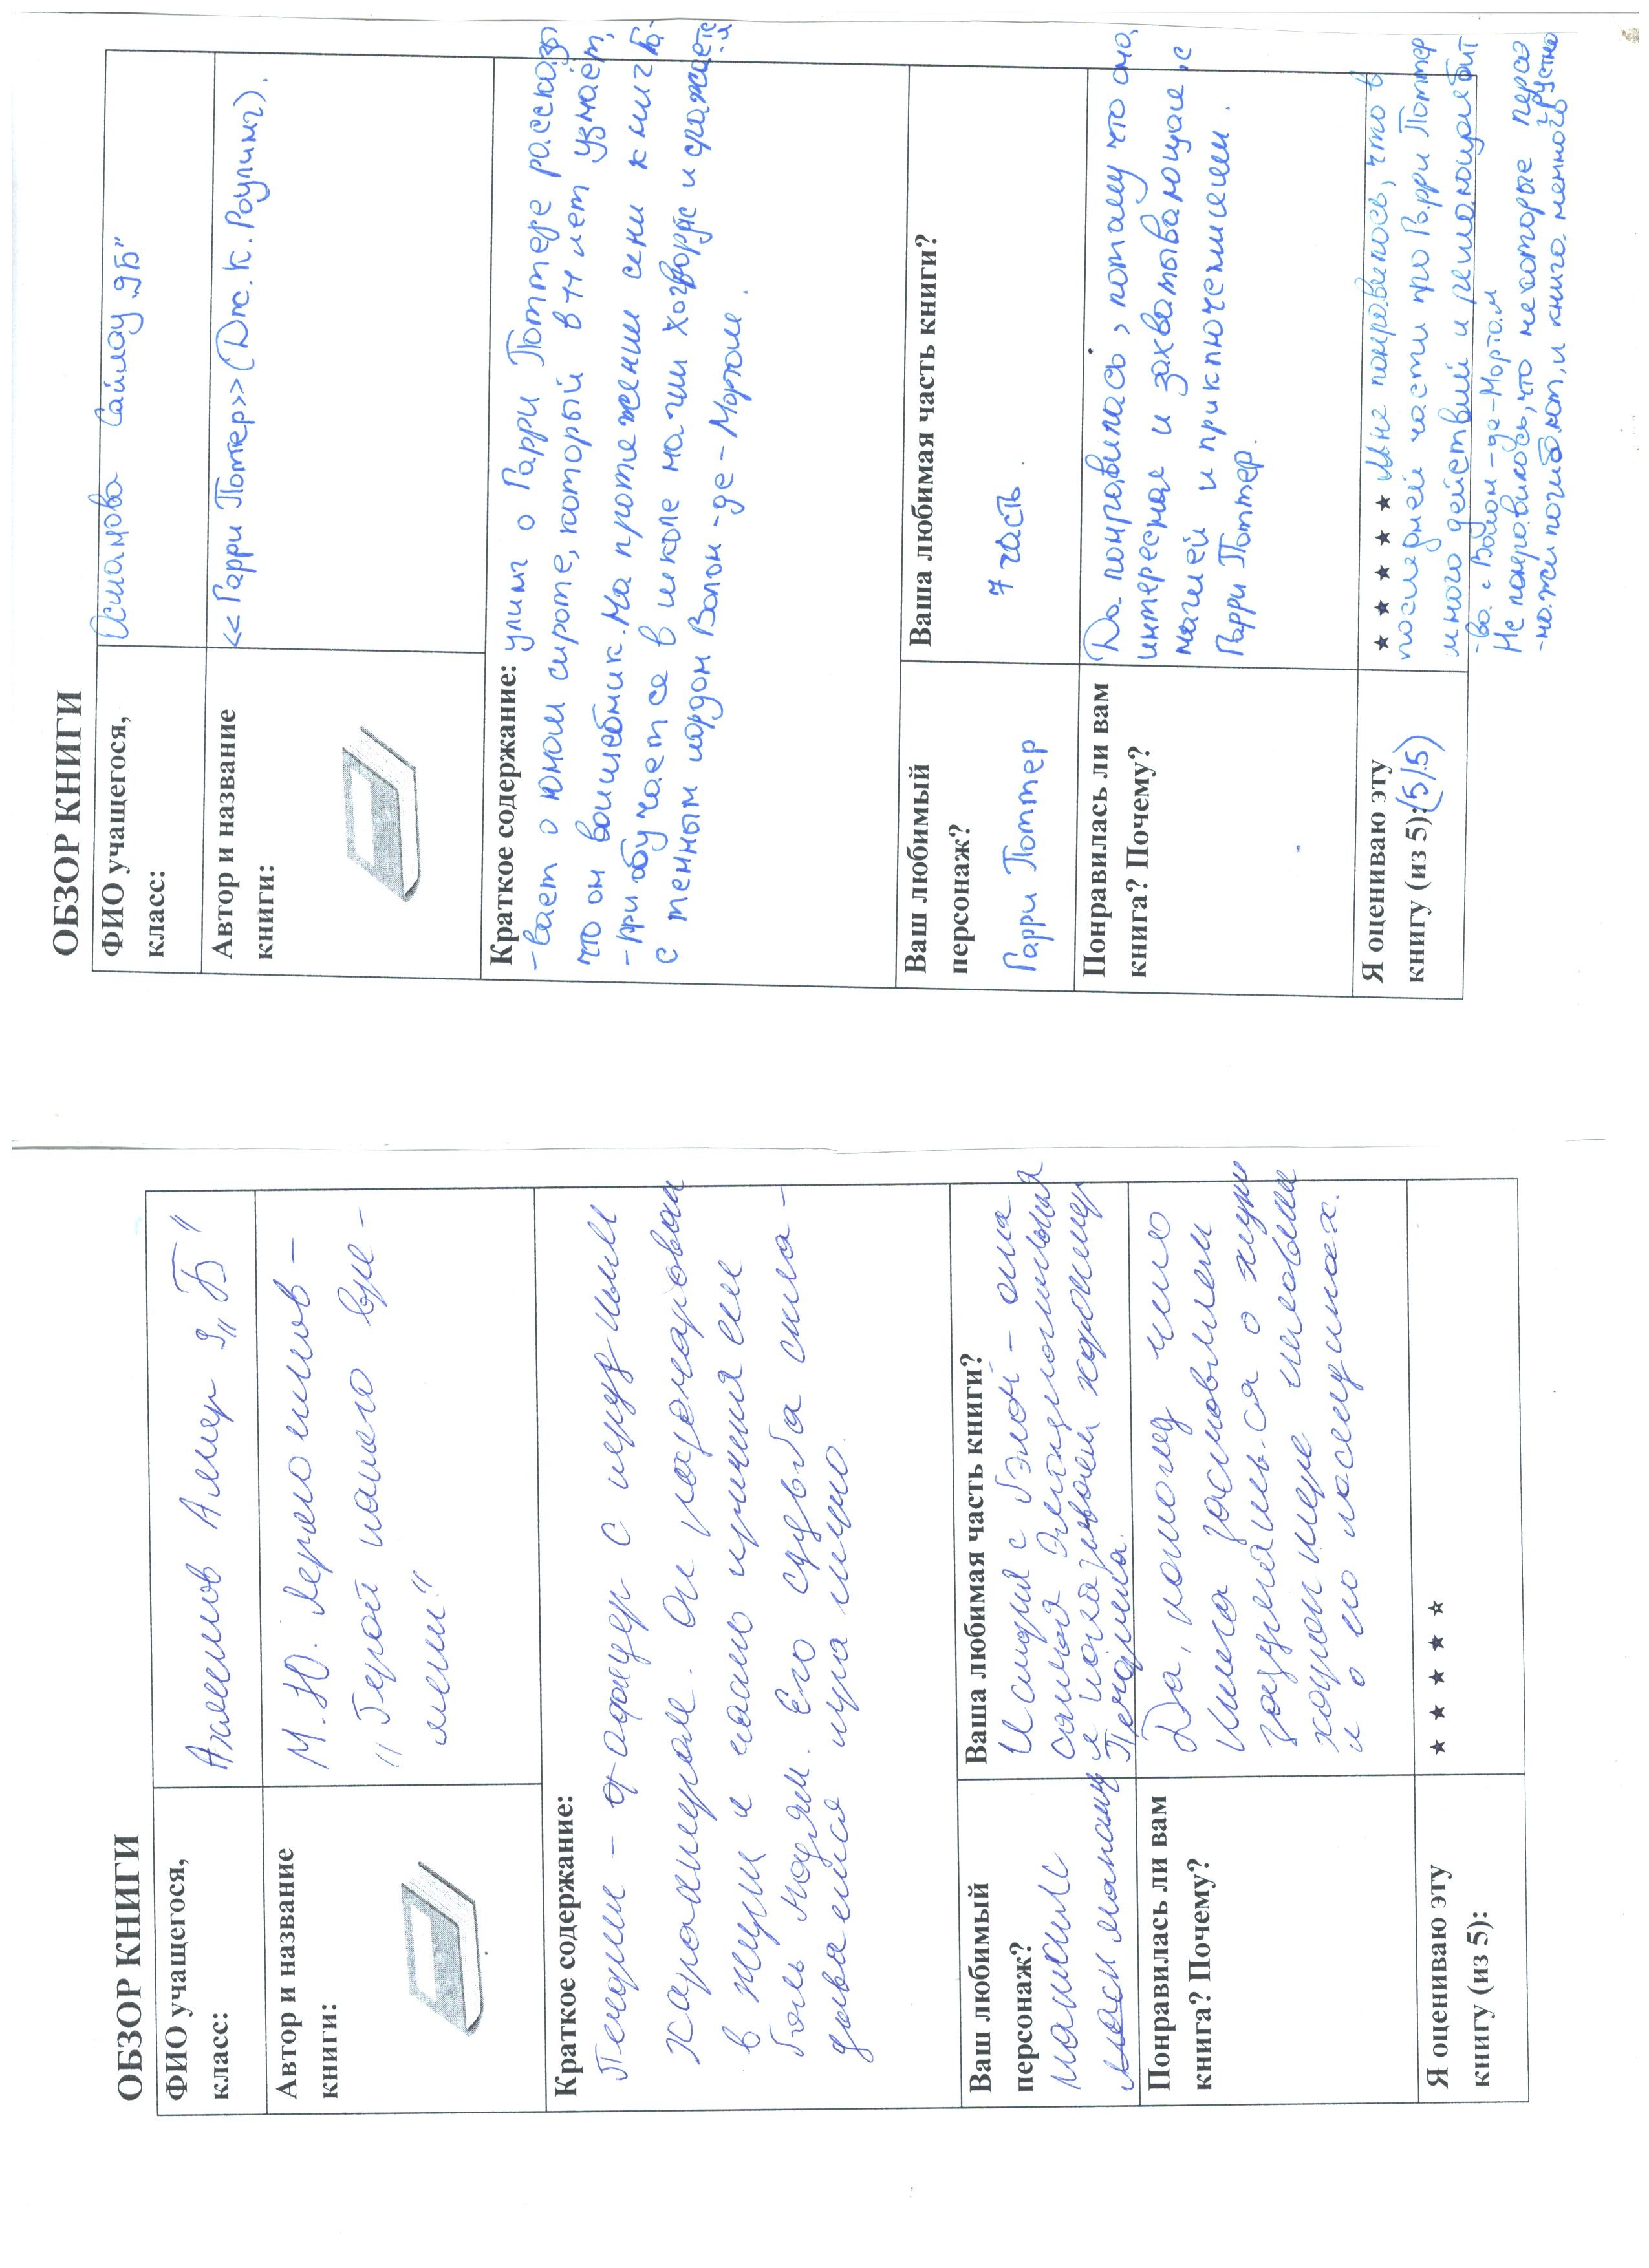 ОБЗОР КНИГИ
ФИО учащегося,
класс:
Ахметов Амир 9 „Б"
Автор и название
книги:
М. Ю. Лермонтов –
"Герой нашего вре-
мени"
Краткое содержание:
Печорин – офицер с трудным
характером. Он разочарован
в жизни и часто причиняет
боль людям. Его судьба скла-
дывается
Ваш любимый
персонаж?
максим
максимыч
Ваша любимая часть книги?
История с Бэлой – она
самая эмоциональная
и показывает характер
Печорина.
Понравилась ли вам
книга? Почему?
Да, потому что
книга заставляет
задуматься о жизни
характере человека
и о его последствиях.
Я оцениваю эту
книгу (из 5):
★ ★ ★ ★ ★
ОБЗОР КНИГИ
ФИО учащегося,
класс:
Исламова Сайлау „9Б"
Автор и название
книги:
<<Гарри Поттер>> (Дж. К. Роулинг).
Краткое содержание: улинг о Гарри Поттере рассказы
-вает о юном сироте, который в 11 лет узнаёт,
что он волшебник. На протяжении семи книг Га-
-рри обучается в школе магии Хогвартс и сражается
с темным лордом Волан-де-Мортом.
Ваш любимый
персонаж?
Гарри Поттер
Ваша любимая часть книги?
7 часть.
Понравилась ли вам
книга? Почему?
Да понравилась, потому что она,
интересная и захватывающая, с
магией и приключениями.
Гарри Поттер.
Я оцениваю эту
книгу (из 5): (5/5)
★ ★ ★ ★ ★ Мне понравилось, что в
последней части про Гарри Поттер
много действий и решающая бит
-ва с Волан-де-Мортом
Не понравилось, что некоторые персо
-нажи погибают, и книга немного грустна